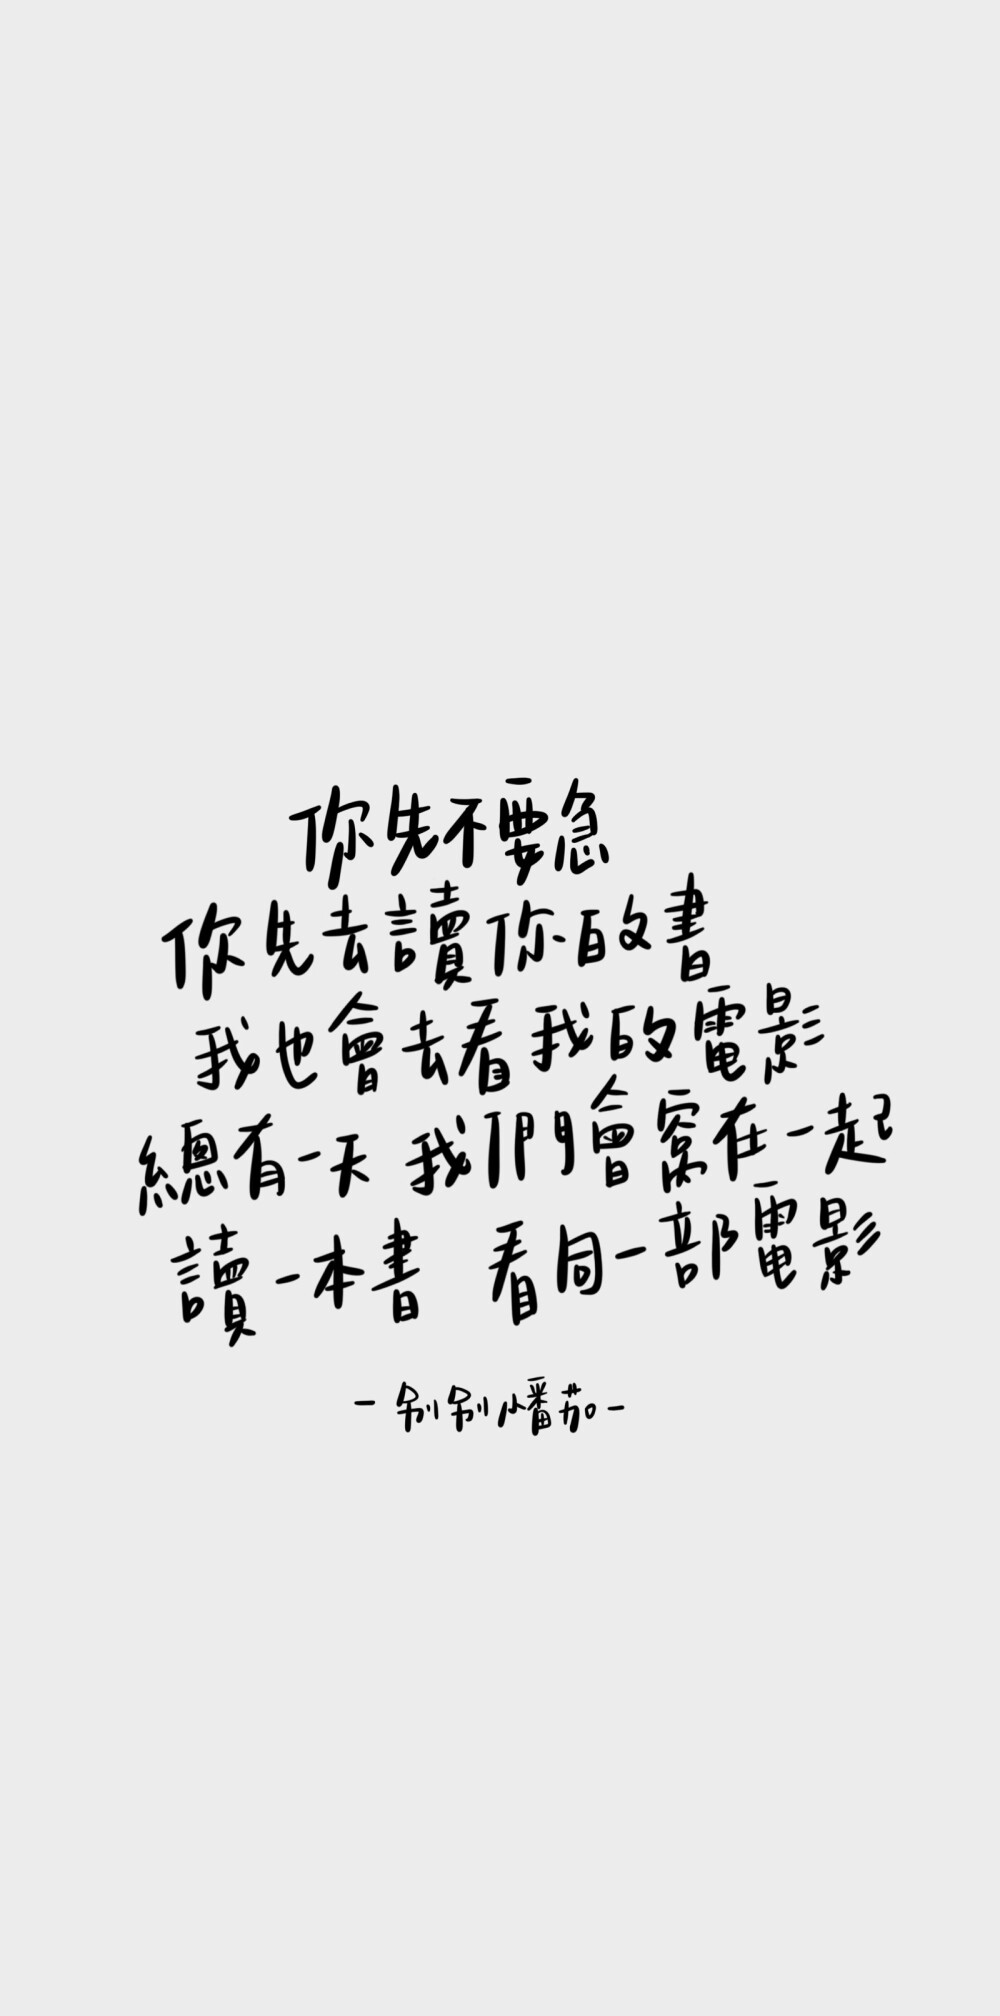 你先不要急
你先去讀你的書
我也會去看我的電影
總有一天 我們會窩在一起
讀一本書 看同一部電影
-別別小番茄-